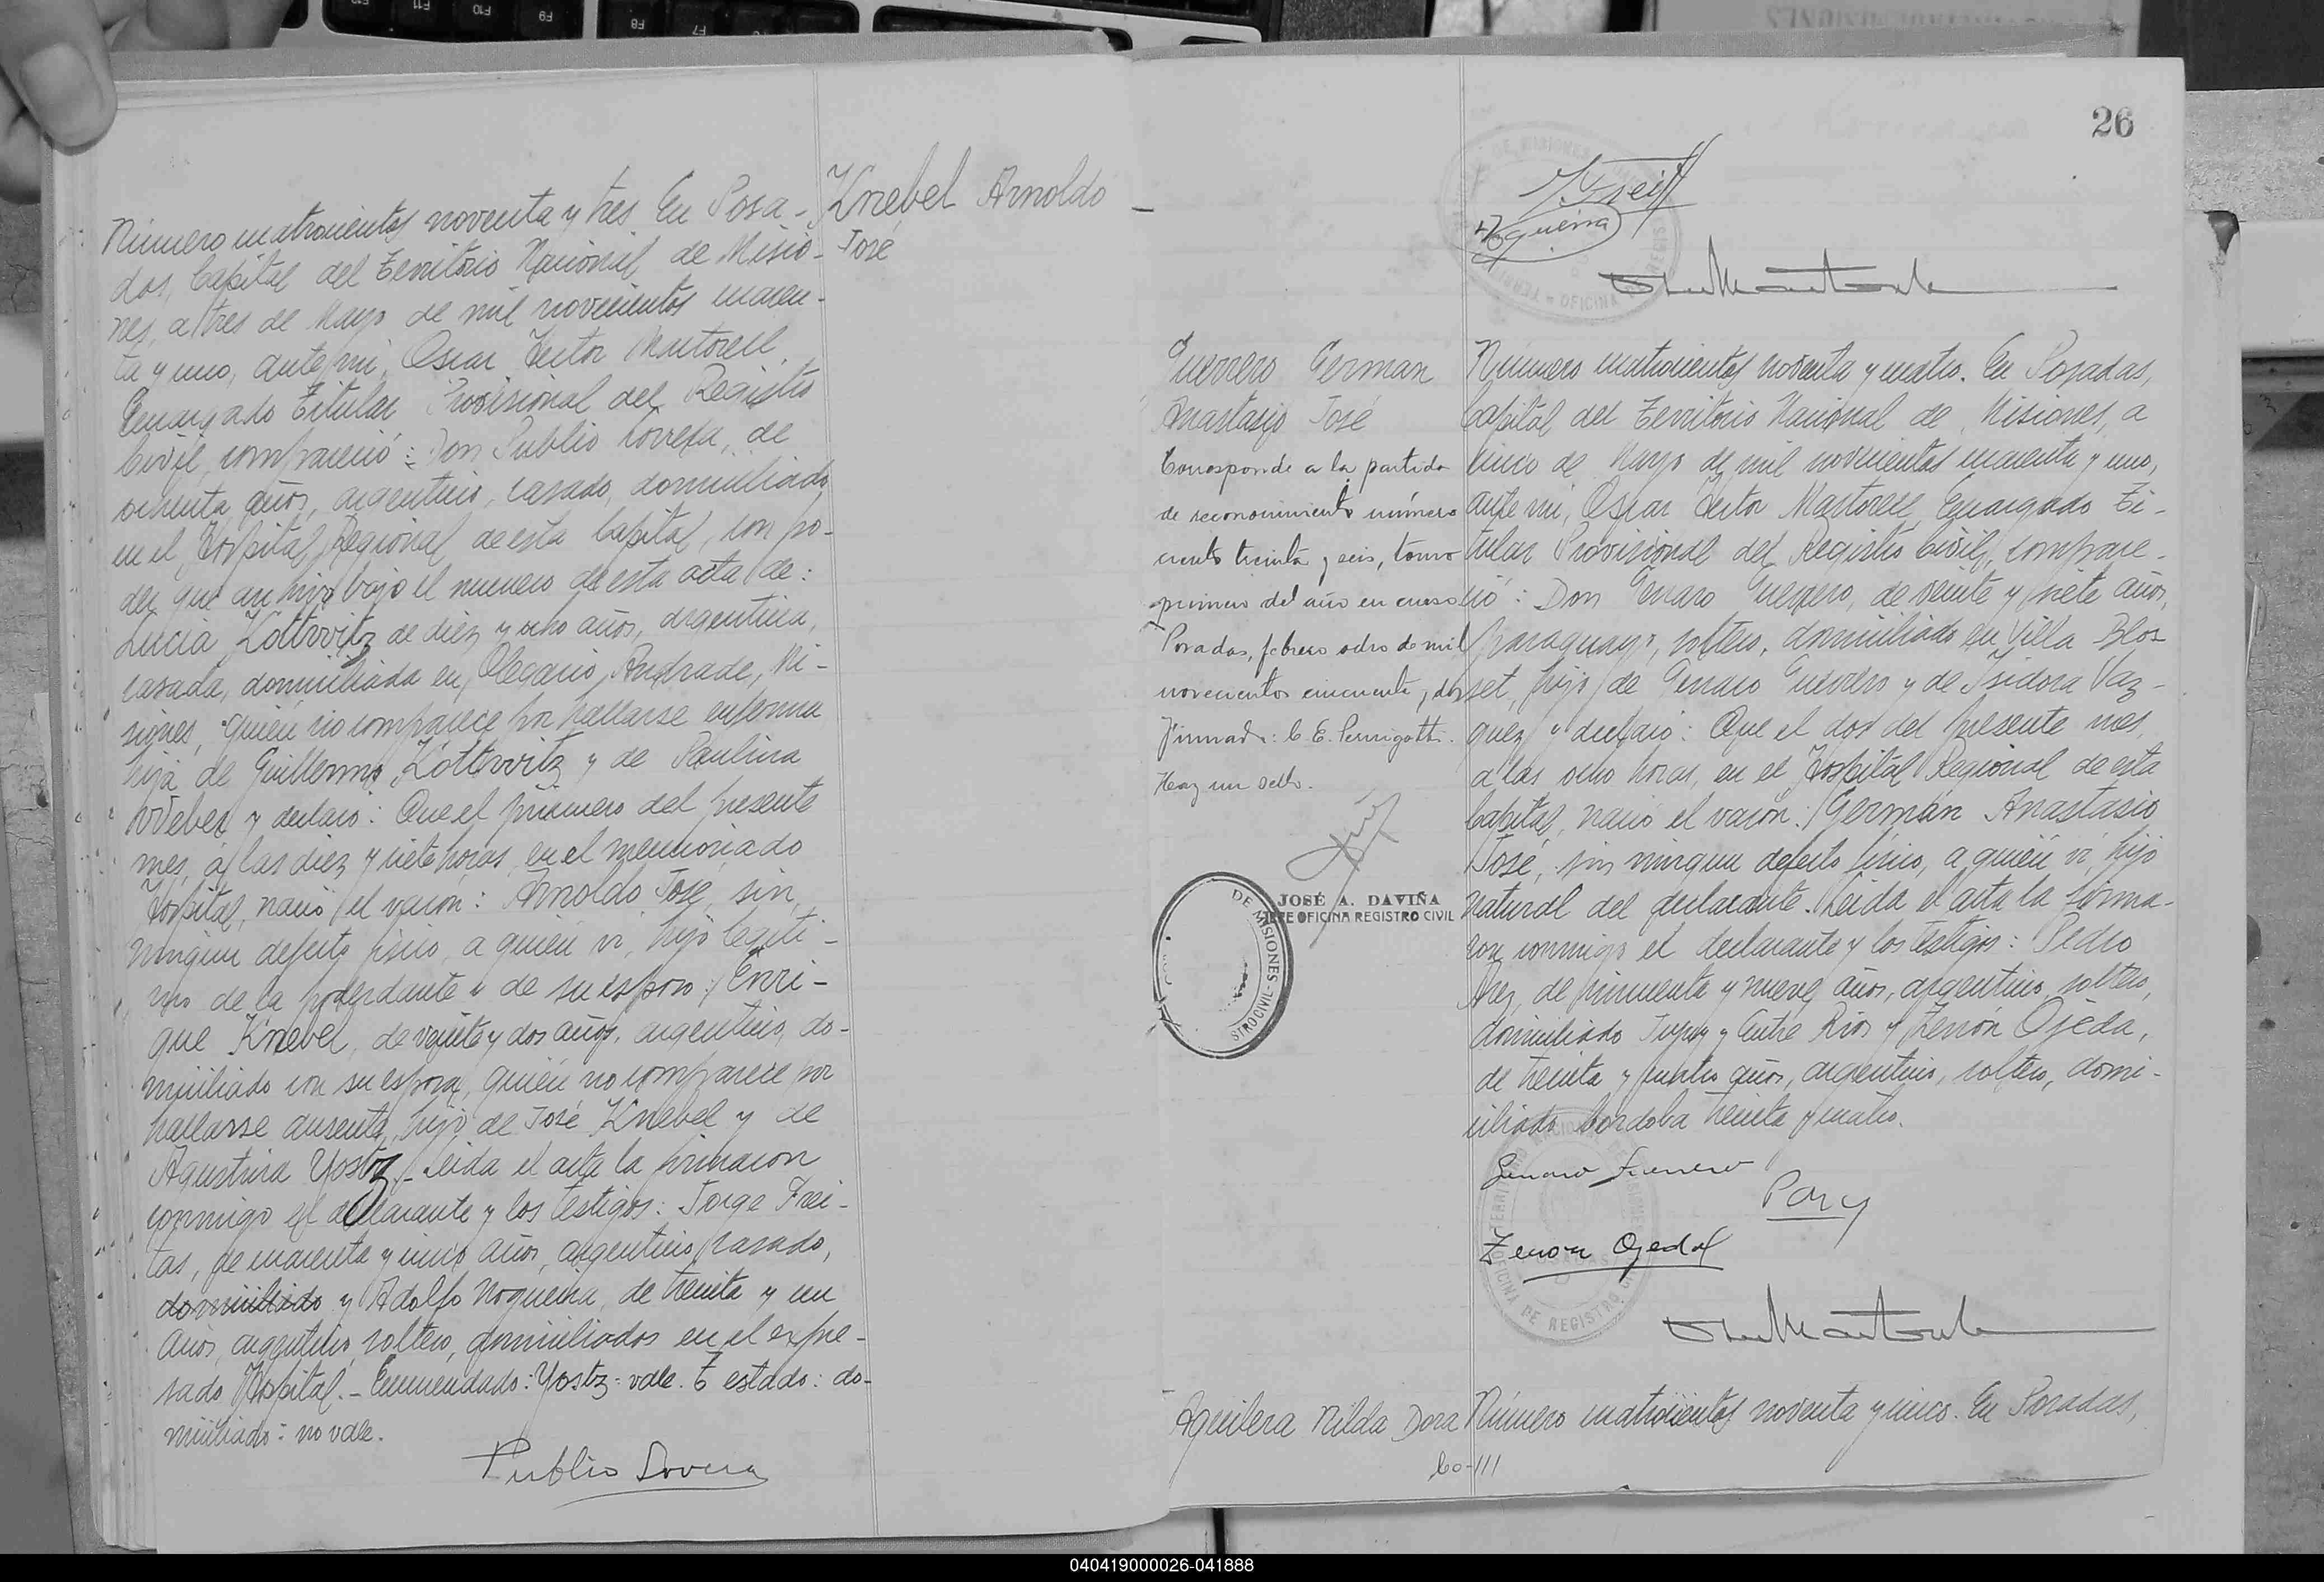 Número cuatrocientos noventa y tres. En Posa-
das, Capital del Territorio Nacional de Misio-
nes, a tres de Mayo de mil novecientos cuaren-
ta y uno, ante mi, Oscar Hector Martorell,
Encargado Titular Provisional del Registro
Civil, compareció: Don Publio Lovera, de
ochenta años, argentino, casado, domiciliado
en el Hospital Regional de esta Capital, con po-
der que archivo bajo el numero de esta acta de:
Lucia Kottwitz de diez y ocho años, argentina,
casada, domiciliada en Olegario Andrade, Mi-
siones, quién no comparece por hallarse enferma
hija de Guillermo Kottwitz y de Paulina
Weber y declaró: Que el primero del presente
mes, a las diez y siete horas, en el mencionado
Hospital, nació el varón: Arnoldo José, sin
ningun defecto físico, a quién vi, hijo legíti-
mo de la poderdante y de su esposo: Enri-
que Knebel, de veinte y dos años, argentino, do-
miciliado con su esposa, quién no comparece por
hallarse ausente, hijo de José Knebel y de
Agustina Yostz. Leida el acta la firmaron
conmigo el declarante y los testigos: Jorge Frei-
tas, de cuarenta y cinco años, argentino, casado,
domiciliado y Adolfo Nogueira, de treinta y un
años, argentino, soltero, domiciliados en el expre-
sado Hospital.- Enmendado: Yostz: vale. T estado: do-
miciliado: no vale.
Publio Lovera
Knebel Arnoldo
José
26
Nogueira
Guerrero German
Anastasio José
Corresponde a la partida
de reconocimiento número
ciento treinta y seis, tomo
primero del año en curso
Posadas, febrero ocho de mil
novecientos cincuenta y dos
Firmado: C. E. Pernigotti.
Hay un sello.
JOSÉ A. DAVIÑA
JEFE OFICINA REGISTRO CIVIL
DE MISIONES
STRO CIVIL
Número cuatrocientos noventa y cuatro. En Posadas,
Capital del Territorio Nacional de Misiones, a
cinco de Mayo de mil novecientos cuarenta y uno,
ante mi, Oscar Hector Martorell, Encargado Ti-
tular Provisional del Registro Civil, compare-
ció: Don Genaro Guerrero, de veinte y siete años,
paraguayo, soltero, domiciliado en Villa Blos-
set, hijo de Genaro Guerrero y de Isidora Vaz-
quez y declaró: Que el dos del presente mes,
a las ocho horas, en el Hospital Regional de esta
Capital, nació el varón: Germán Anastasio
José, sin ningun defecto físico, a quién vi, hijo
natural del declarante. Leida el acta la firma-
ron conmigo el declarante y los testigos: Pedro
Arez, de cincuenta y nueve años, argentino, soltero,
domiciliado Jujuy y Entre Rios y Zenón Ojeda,
de treinta y cuatro años, argentino, soltero, domi-
ciliado Cordoba treinta y cuatro.
Genaro Guerrero
Zenon Ojeda
OFICINA DE REGISTRO
Aguilera Nilda Dora
Número cuatrocientos noventa y cinco. En Posadas,
Co-111
040419000026-041888